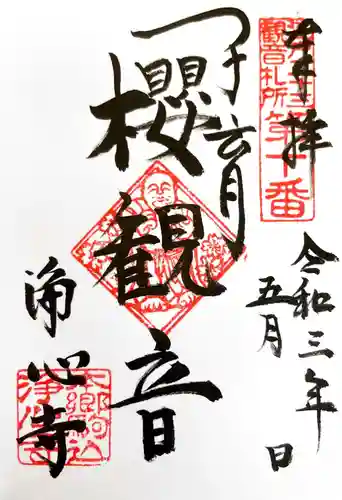 奉拝
観音札所
第十番
令和三年
五月 日
六月
櫻観音
浄心寺
本郷駒込
浄心寺